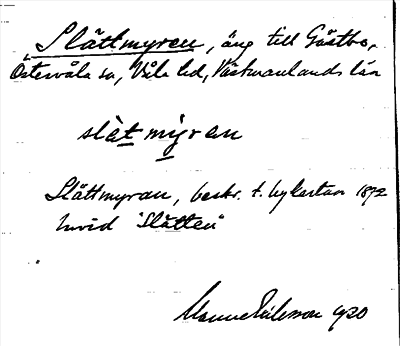 Slåttmyren, äng till Gästbo,
Östervåla sn, Våla hd, Västmanlands län
slåt myran
Slåttmyran, beskr. t. bykartan 1872
invid "Slåtten"
Manne Eriksson 1920